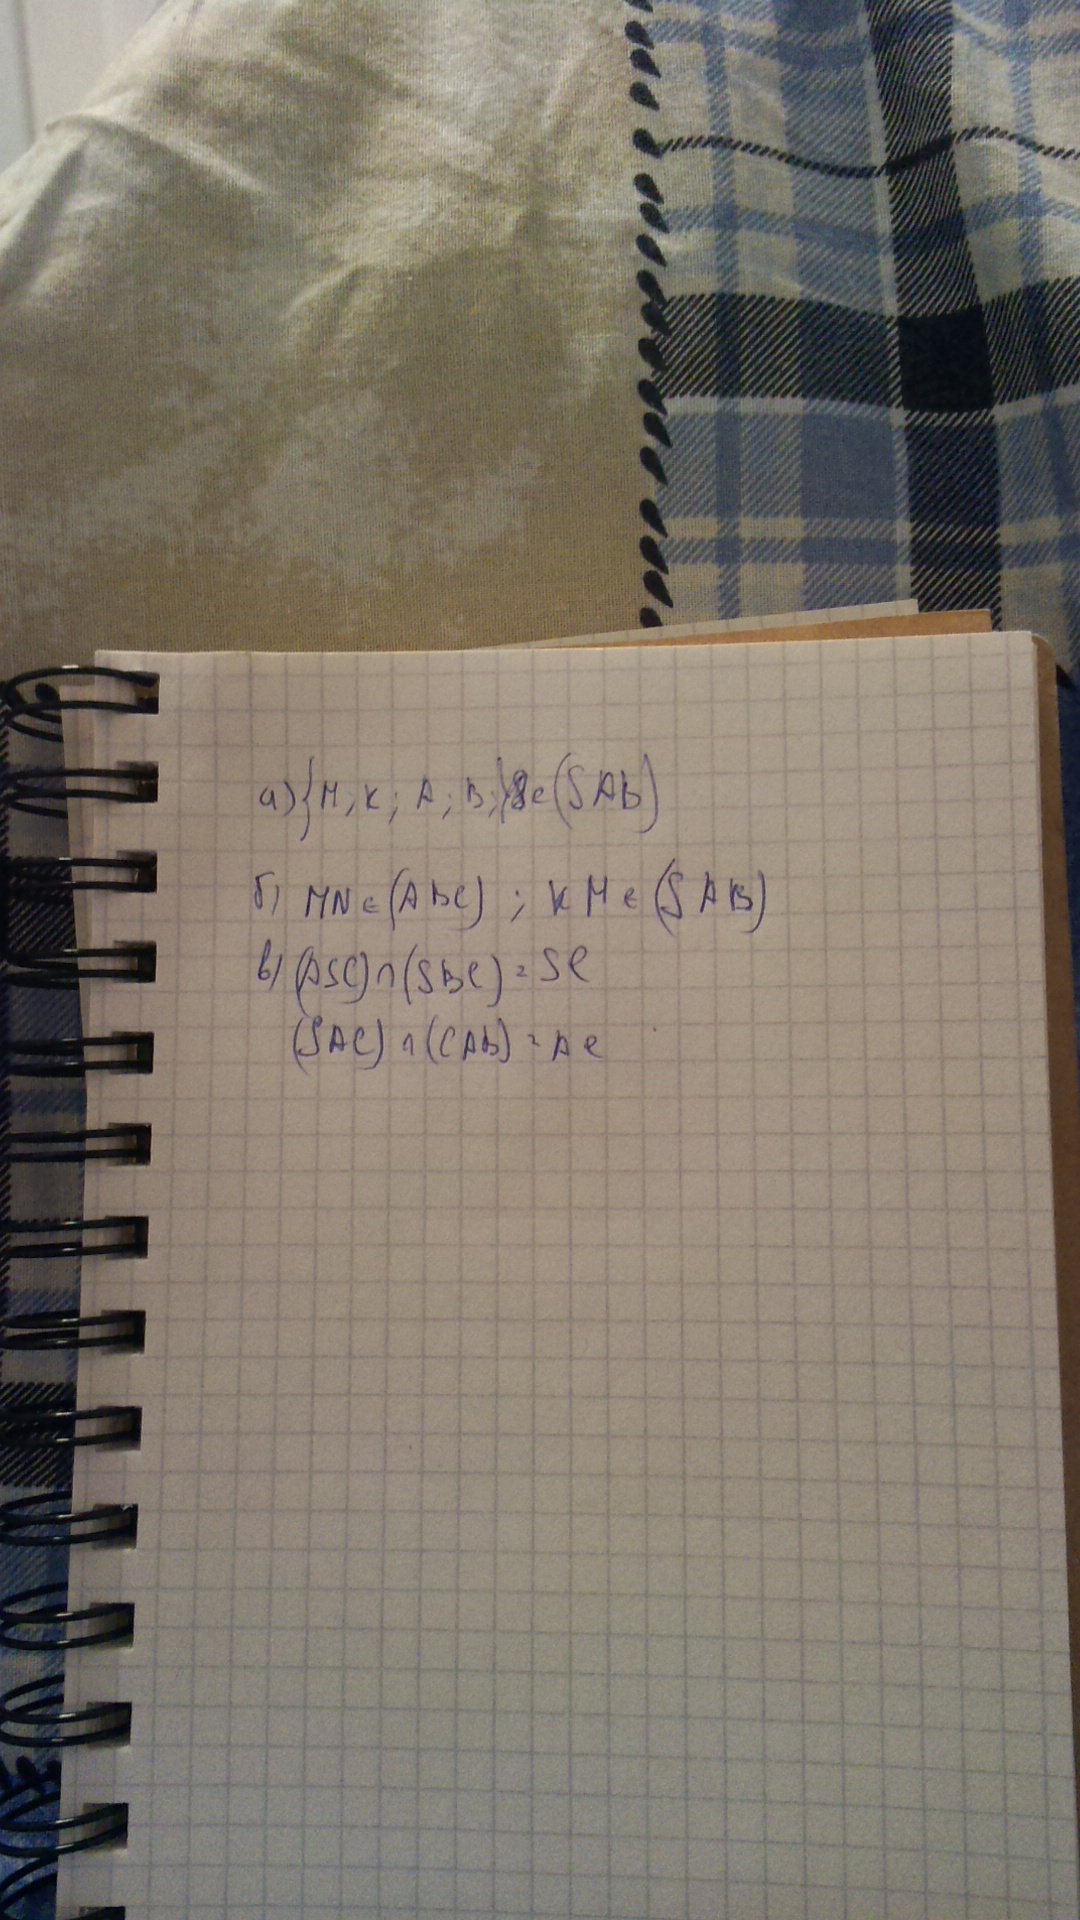 а) {M; K; A; B;} ∈ (SAB)
б) MN ∈ (ABC) ; KM ∈ (SAB)
в) (ASC) ∩ (SBC) = SC
(SAC) ∩ (CAB) = AC